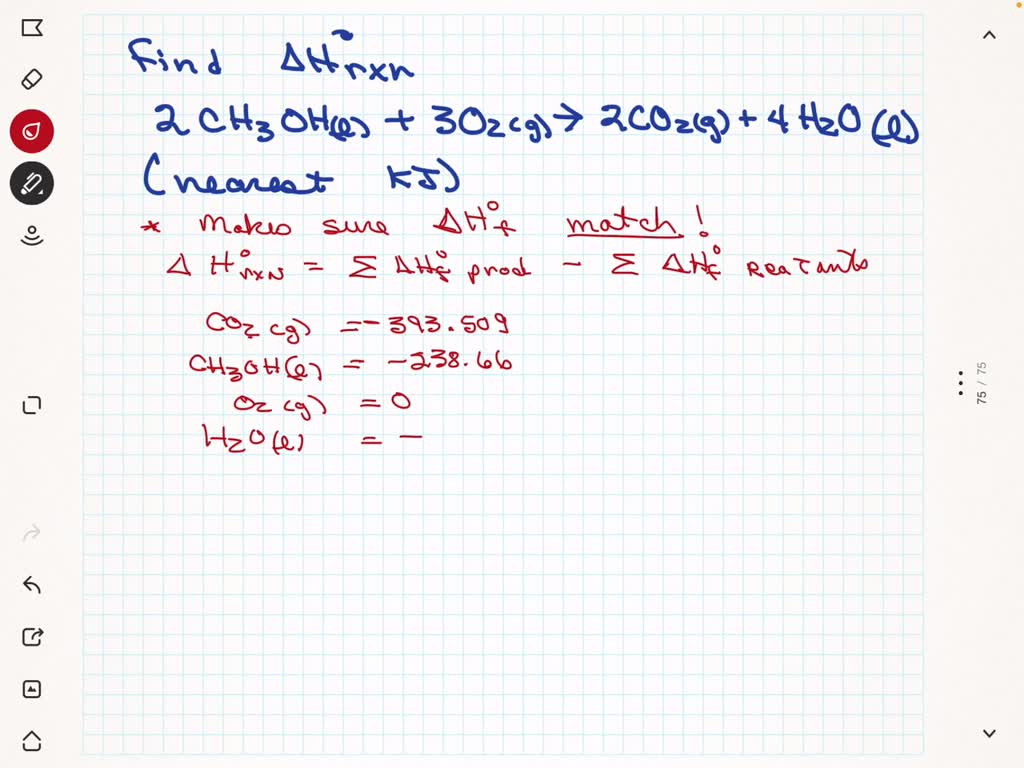 Find ΔH°rxn
2CH₃OH(l) + 3O₂(g) → 2CO₂(g) + 4H₂O(l)
(nearest KJ)
* Makes sure ΔH°f match!
ΔH°rxn = Σ ΔH°f prod - Σ ΔH°f Reatants
CO₂(g) = -393.509
CH₃OH(l) = -238.66
O₂(g) = 0
H₂O(l) = -
75 / 75